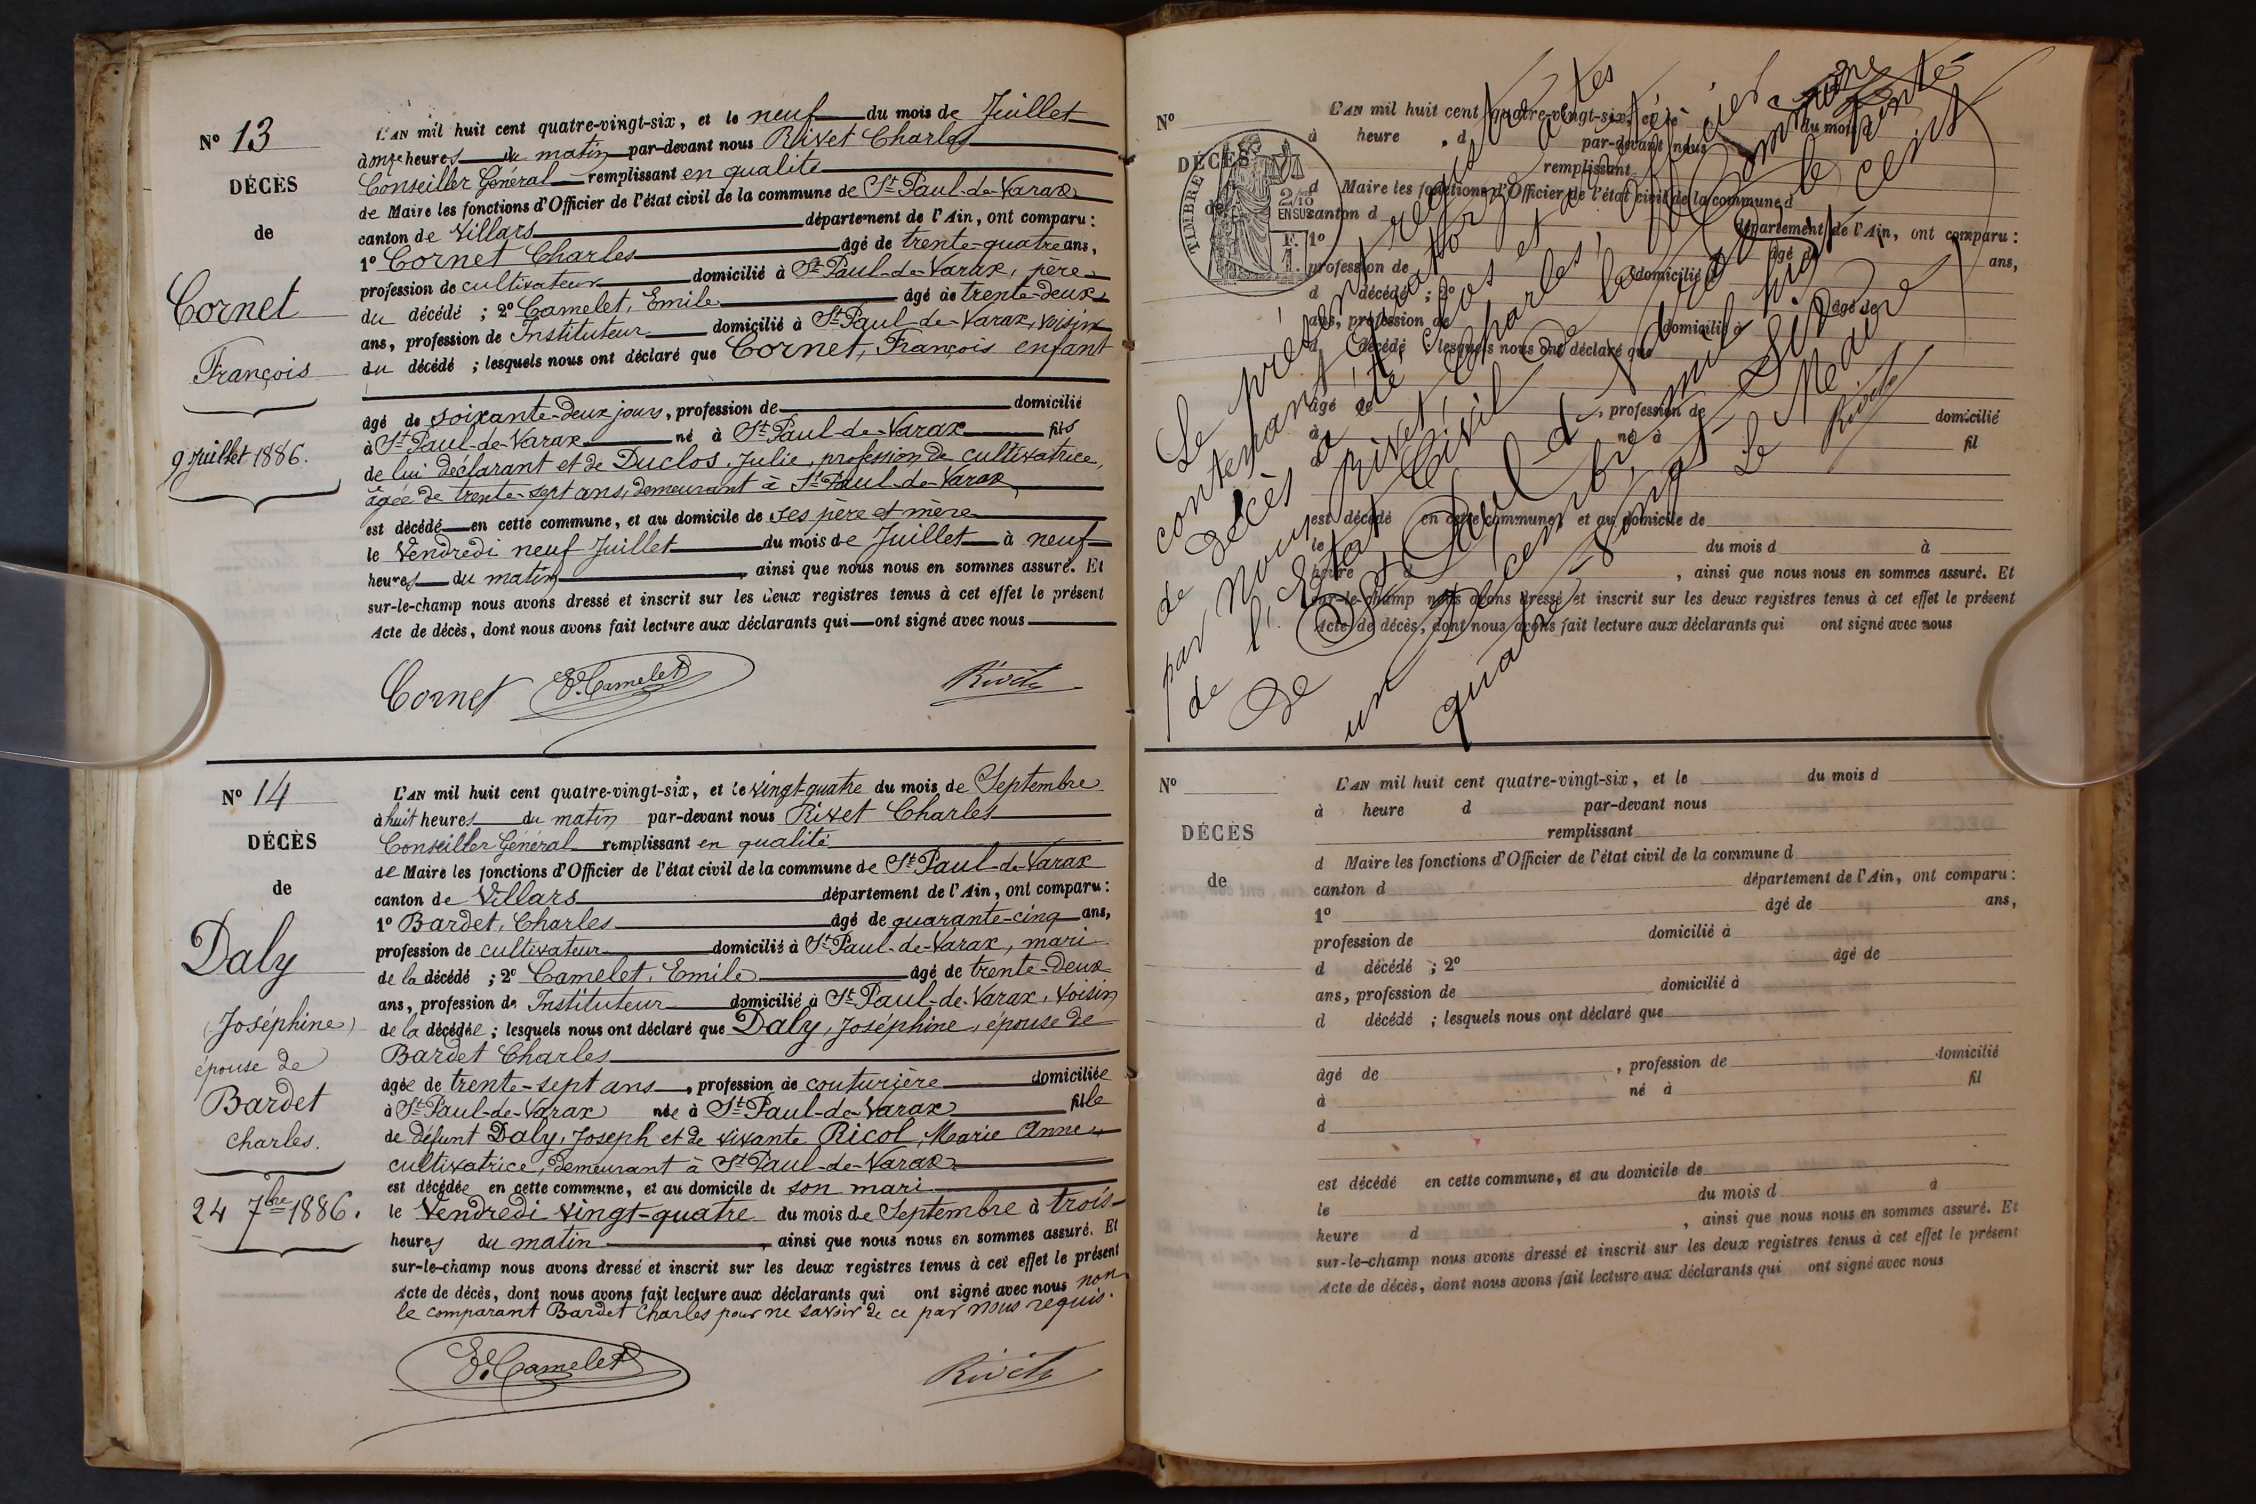 N° 13
DÉCÈS
de
Cornet
François
9 Juillet 1886.
L'AN mil huit cent quatre-vingt-six, et le neuf du mois de Juillet
à onze heures du matin par-devant nous Rivet Charles
Conseiller Général remplissant en qualité
de Maire les fonctions d'Officier de l'état civil de la commune de St Paul-de-Varax
canton de Villars département de l'Ain, ont comparu :
1° Cornet Charles âgé de trente-quatre ans,
profession de cultivateur domicilié à St Paul-de-Varax, père
du décédé ; 2° Camelet, Emile âgé de trente-deux
ans, profession de Instituteur domicilié à St Paul-de-Varax, voisin
du décédé ; lesquels nous ont déclaré que Cornet, François enfant
âgé de soixante-deux jours, profession de domicilié
à St Paul-de-Varax né à St Paul-de-Varax fils
de lui déclarant et de Duclos, Julie, profession de cultivatrice,
âgée de trente-sept ans, demeurant à St Paul-de-Varax
est décédé en cette commune, et au domicile de ses père et mère
le Vendredi neuf Juillet du mois de Juillet à neuf
heures du matin, ainsi que nous nous en sommes assuré. Et
sur-le-champ nous avons dressé et inscrit sur les deux registres tenus à cet effet le présent
Acte de décès, dont nous avons fait lecture aux déclarants qui ont signé avec nous
Cornet E. Camelet Rivet
N° 14
DÉCÈS
de
Daly
(Joséphine)
épouse de
Bardet
Charles.
24 7bre 1886.
L'AN mil huit cent quatre-vingt-six, et le vingt-quatre du mois de Septembre
à huit heures du matin par-devant nous Rivet Charles
Conseiller Général remplissant en qualité
de Maire les fonctions d'Officier de l'état civil de la commune de St Paul-de-Varax
canton de Villars département de l'Ain, ont comparu :
1° Bardet, Charles âgé de quarante-cinq ans,
profession de cultivateur domicilié à St Paul-de-Varax, mari
de la décédé ; 2° Camelet, Emile âgé de trente-deux
ans, profession de Instituteur domicilié à St Paul-de-Varax, voisin
de la décédée ; lesquels nous ont déclaré que Daly, Joséphine, épouse de
Bardet Charles
âgée de trente-sept ans, profession de couturière domiciliée
à St Paul-de-Varax née à St Paul-de-Varax fille
de défunt Daly, Joseph et de vivante Ricol, Marie Anne
cultivatrice, demeurant à St Paul-de-Varax
est décédée en cette commune, et au domicile de son mari
le Vendredi vingt-quatre du mois de Septembre à trois
heures du matin, ainsi que nous nous en sommes assuré. Et
sur-le-champ nous avons dressé et inscrit sur les deux registres tenus à cet effet le présent
Acte de décès, dont nous avons fait lecture aux déclarants qui ont signé avec nous non
le comparant Bardet Charles pour ne savoir de ce par nous requis.
E. Camelet Rivet
N°
DÉCÈS
de
TIMBRE
2/10
EN SUS
L'AN mil huit cent quatre-vingt-six, et le du mois d
à heure d par-devant nous
remplissant
d Maire les fonctions d'Officier de l'état civil de la commune d
canton d département de l'Ain, ont comparu :
1° âgé de ans,
profession de domicilié à
d décédé ; 2° âgé de
ans, profession de domicilié à
d décédé ; lesquels nous ont déclaré que
âgé de , profession de domicilié
à né à fil
est décédé en cette commune, et au domicile de
le du mois d à
heure d , ainsi que nous nous en sommes assuré. Et
sur-le-champ nous avons dressé et inscrit sur les deux registres tenus à cet effet le présent
Acte de décès, dont nous avons fait lecture aux déclarants qui ont signé avec nous
Le présent registre
contenant quatorze actes
de décès a été clos et arrêté
par Nous Rivet, Charles, officier
de l'Etat Civil de la Commune
de St Paul-de-Varax le trente
un Décembre mil huit cent
quatre-vingt-six
Le Maire
Rivet
N°
DÉCÈS
de
L'AN mil huit cent quatre-vingt-six, et le du mois d
à heure d par-devant nous
remplissant
d Maire les fonctions d'Officier de l'état civil de la commune d
canton d département de l'Ain, ont comparu :
1° âgé de ans,
profession de domicilié à
d décédé ; 2° âgé de
ans, profession de domicilié à
d décédé ; lesquels nous ont déclaré que
âgé de , profession de domicilié
à né à fil
d
est décédé en cette commune, et au domicile de
le du mois d à
heure d , ainsi que nous nous en sommes assuré. Et
sur-le-champ nous avons dressé et inscrit sur les deux registres tenus à cet effet le présent
Acte de décès, dont nous avons fait lecture aux déclarants qui ont signé avec nous